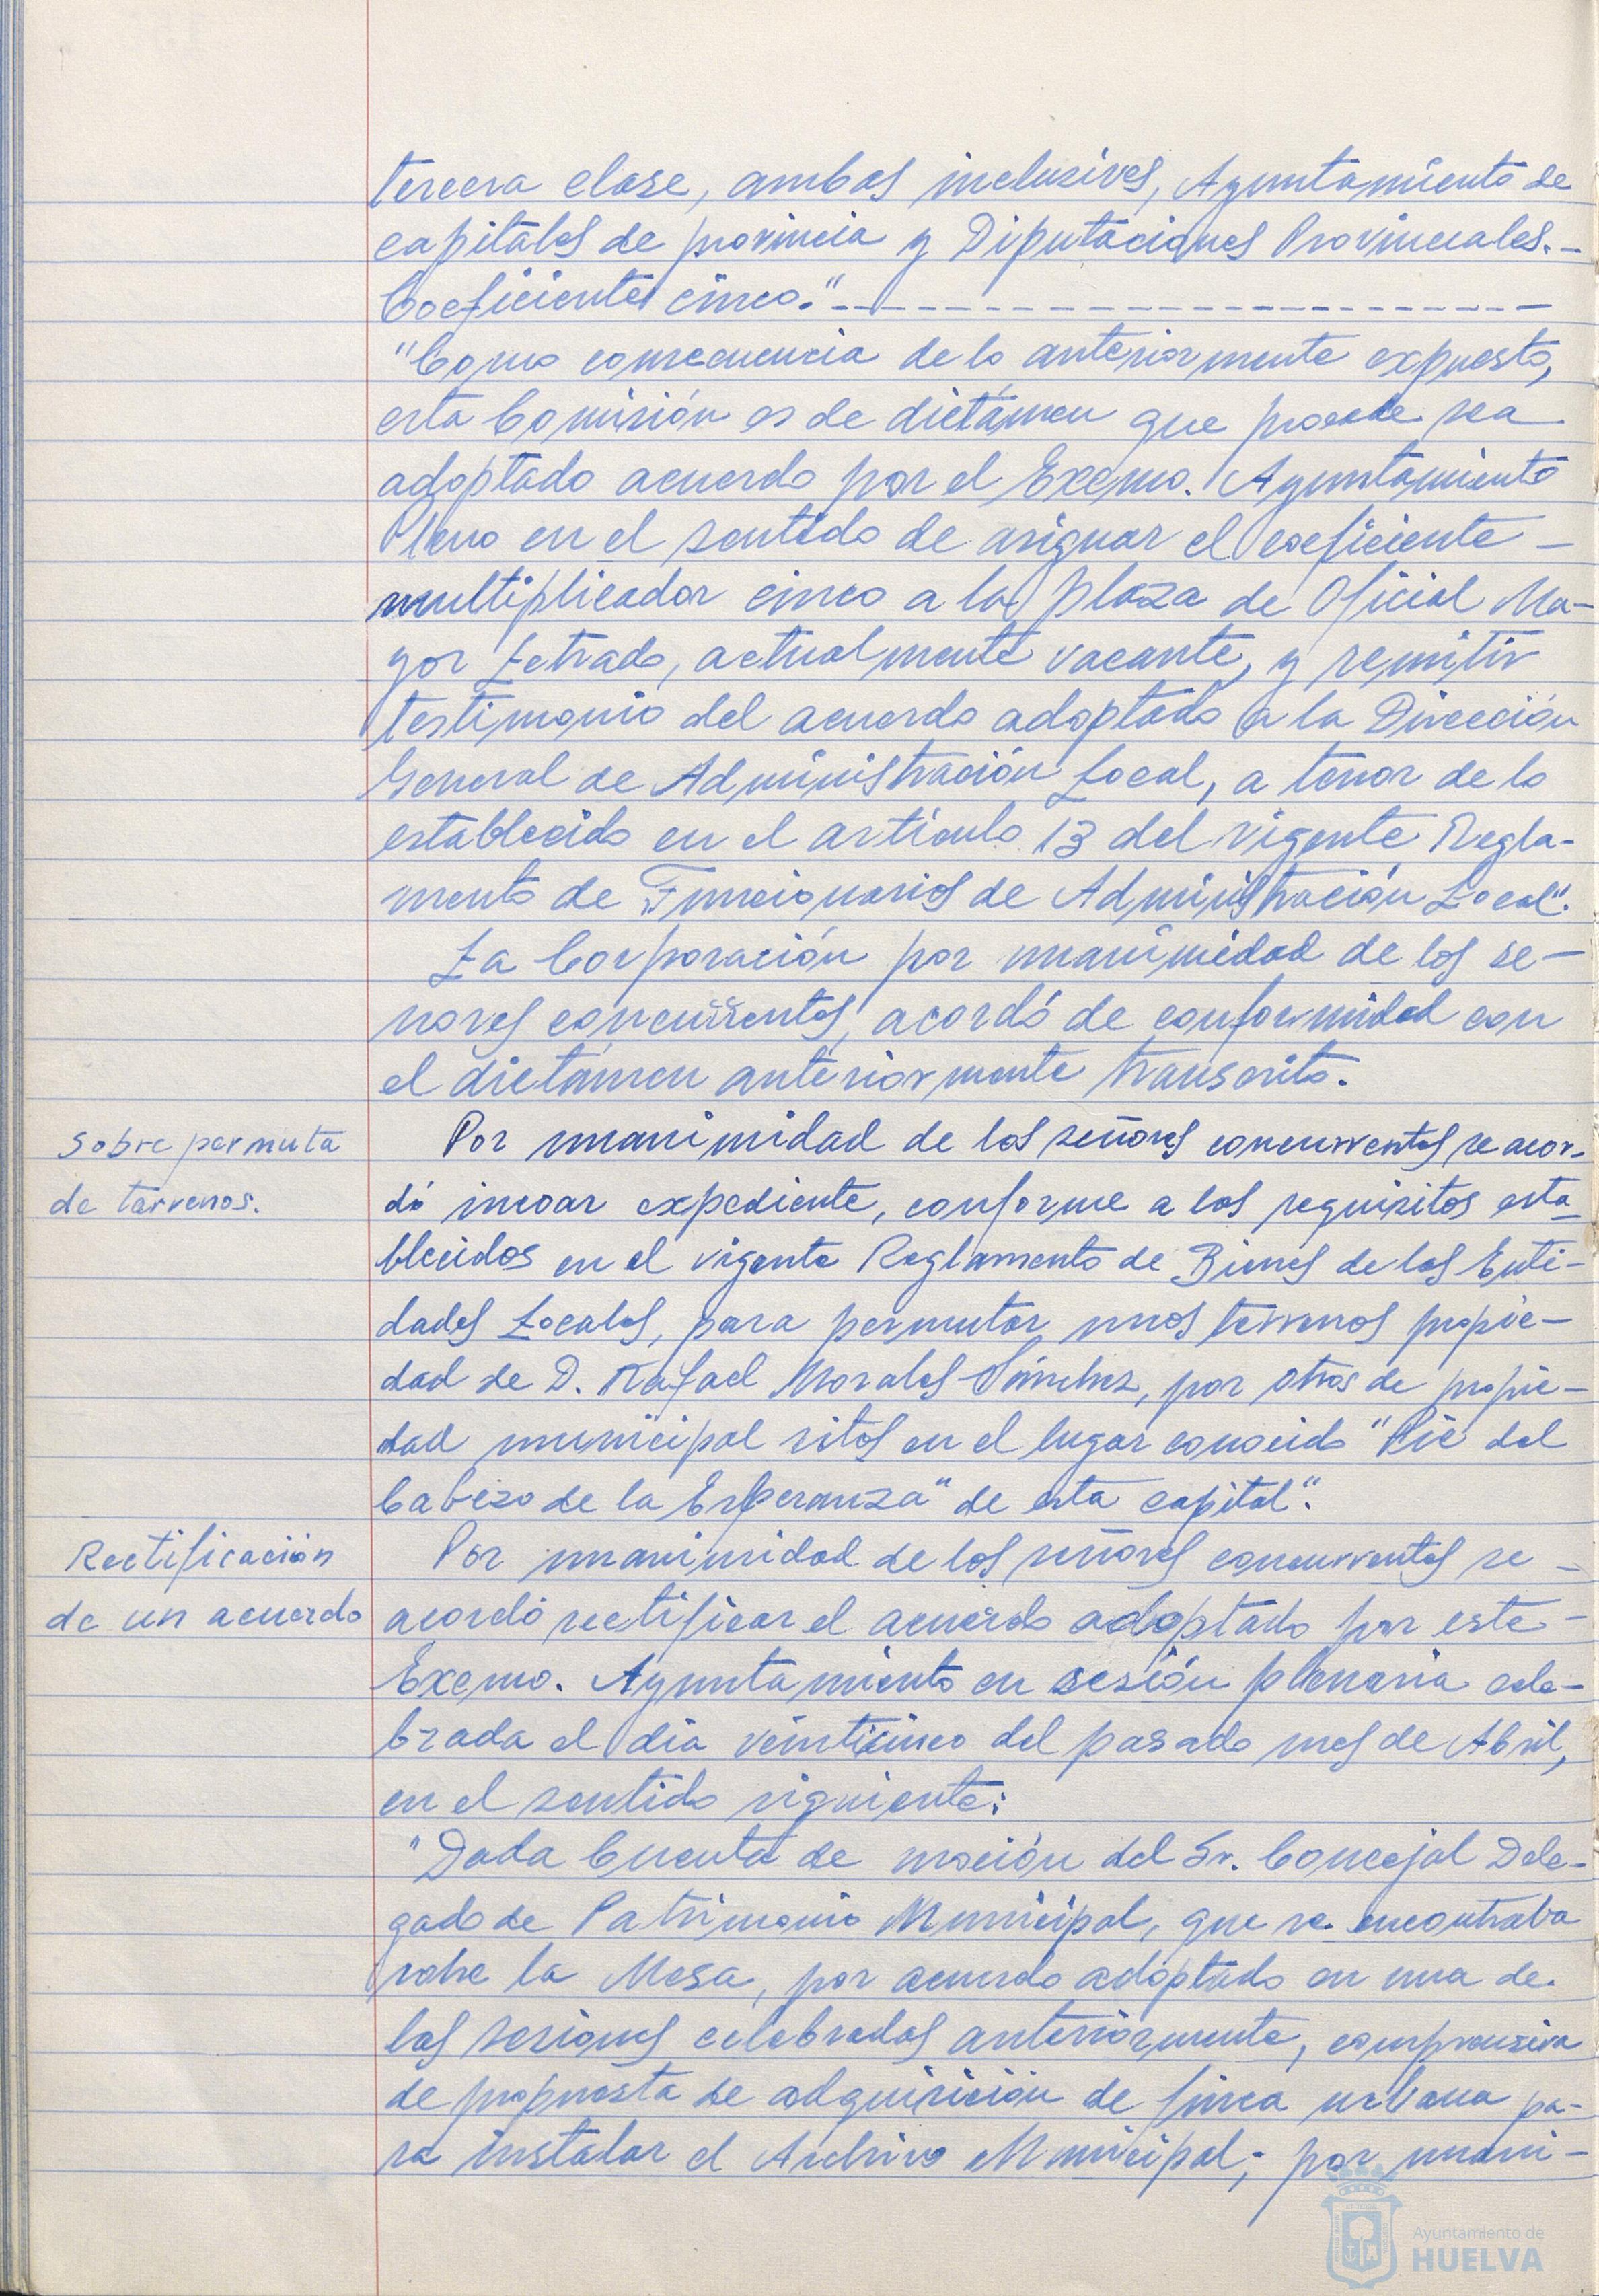 tercera clase, ambas inclusives, Ayuntamiento de
capitales de provincia y Diputaciones Provinciales.-
Coeficiente cinco."-----------------------
"Como consecuencia de lo anteriormente expuesto,
esta Comisión es de dictámen que procede sea
adoptado acuerdo por el Excmo. Ayuntamiento
Pleno en el sentido de asignar el coeficiente -
multiplicador cinco a la plaza de Oficial Ma-
yor Letrado, actualmente vacante, y remitir
testimonio del acuerdo adoptado a la Dirección
General de Administración Local, a tenor de lo
establecido en el artículo 13 del vigente Regla-
mento de Funcionarios de Administración Local".
La Corporación por unanimidad de los se-
nores concurrentes, acordó de conformidad con
el dictámen anteriormente transcrito.
Sobre permuta
de terrenos.
Por unanimidad de los señores concurrentes se acor-
dó incoar expediente, conforme a los requisitos esta-
blecidos en el vigente Reglamento de Bienes de las Enti-
dades Locales, para permutar unos terrenos propie-
dad de D. Rafael Morales Sánchez, por otros de propie-
dad municipal sitos en el lugar conocido "Pie del
Cabezo de la Esperanza" de esta capital".
Rectificación
de un acuerdo
Por unanimidad de los señores concurrentes se -
acordó rectificar el acuerdo adoptado por este -
Excmo. Ayuntamiento en sesión plenaria cele-
brada el día veinticinco del pasado mes de Abril,
en el sentido siguiente:
"Dada Cuenta de moción del Sr. Concejal Dele-
gado de Patrimonio Municipal, que se encontraba
sobre la Mesa, por acuerdo adoptado en una de
las sesiones celebradas anteriormente, comprensiva
de propuesta de adquisición de finca urbana pa-
ra instalar el Archivo Municipal; por unani-
Ayuntamiento de
HUELVA